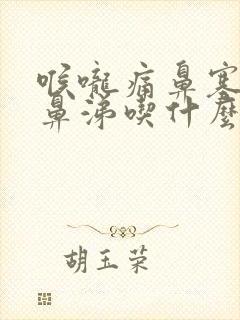 喉嚨痛鼻塞
鼻涕喫什麽
胡玉荣